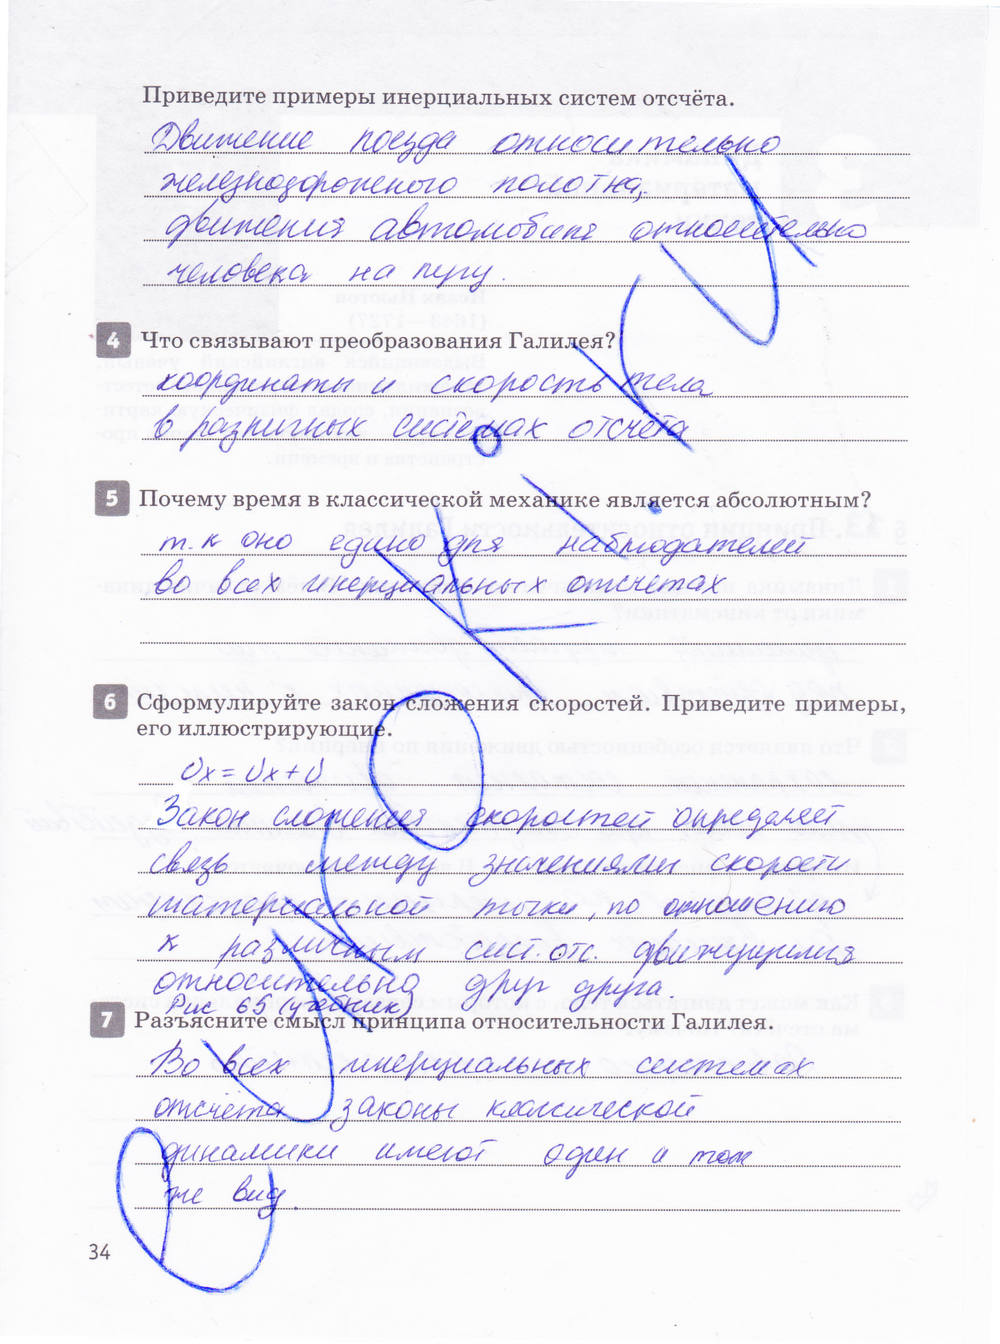 Приведите примеры инерциальных систем отсчёта.
Движение поезда относительно
железнодорожного полотна,
движения автомобиля относительно
человека на лугу.
4 Что связывают преобразования Галилея?
координаты и скорость тела
в различных системах отсчёта
5 Почему время в классической механике является абсолютным?
т.к оно едино для наблюдателей
во всех инерциальных отсчетах
6 Сформулируйте закон сложения скоростей. Приведите примеры,
его иллюстрирующие.
υx = υx + υ
Закон сложения скоростей определяет
связь между значениями скорости
материальной точки, по отношению
к различным сист. отс. движущимися
относительно друг друга
Рис 65 (учебник)
7 Разъясните смысл принципа относительности Галилея.
Во всех инерциальных системах
отсчёта законы классической
динамики имеют один и тот
же вид.
34